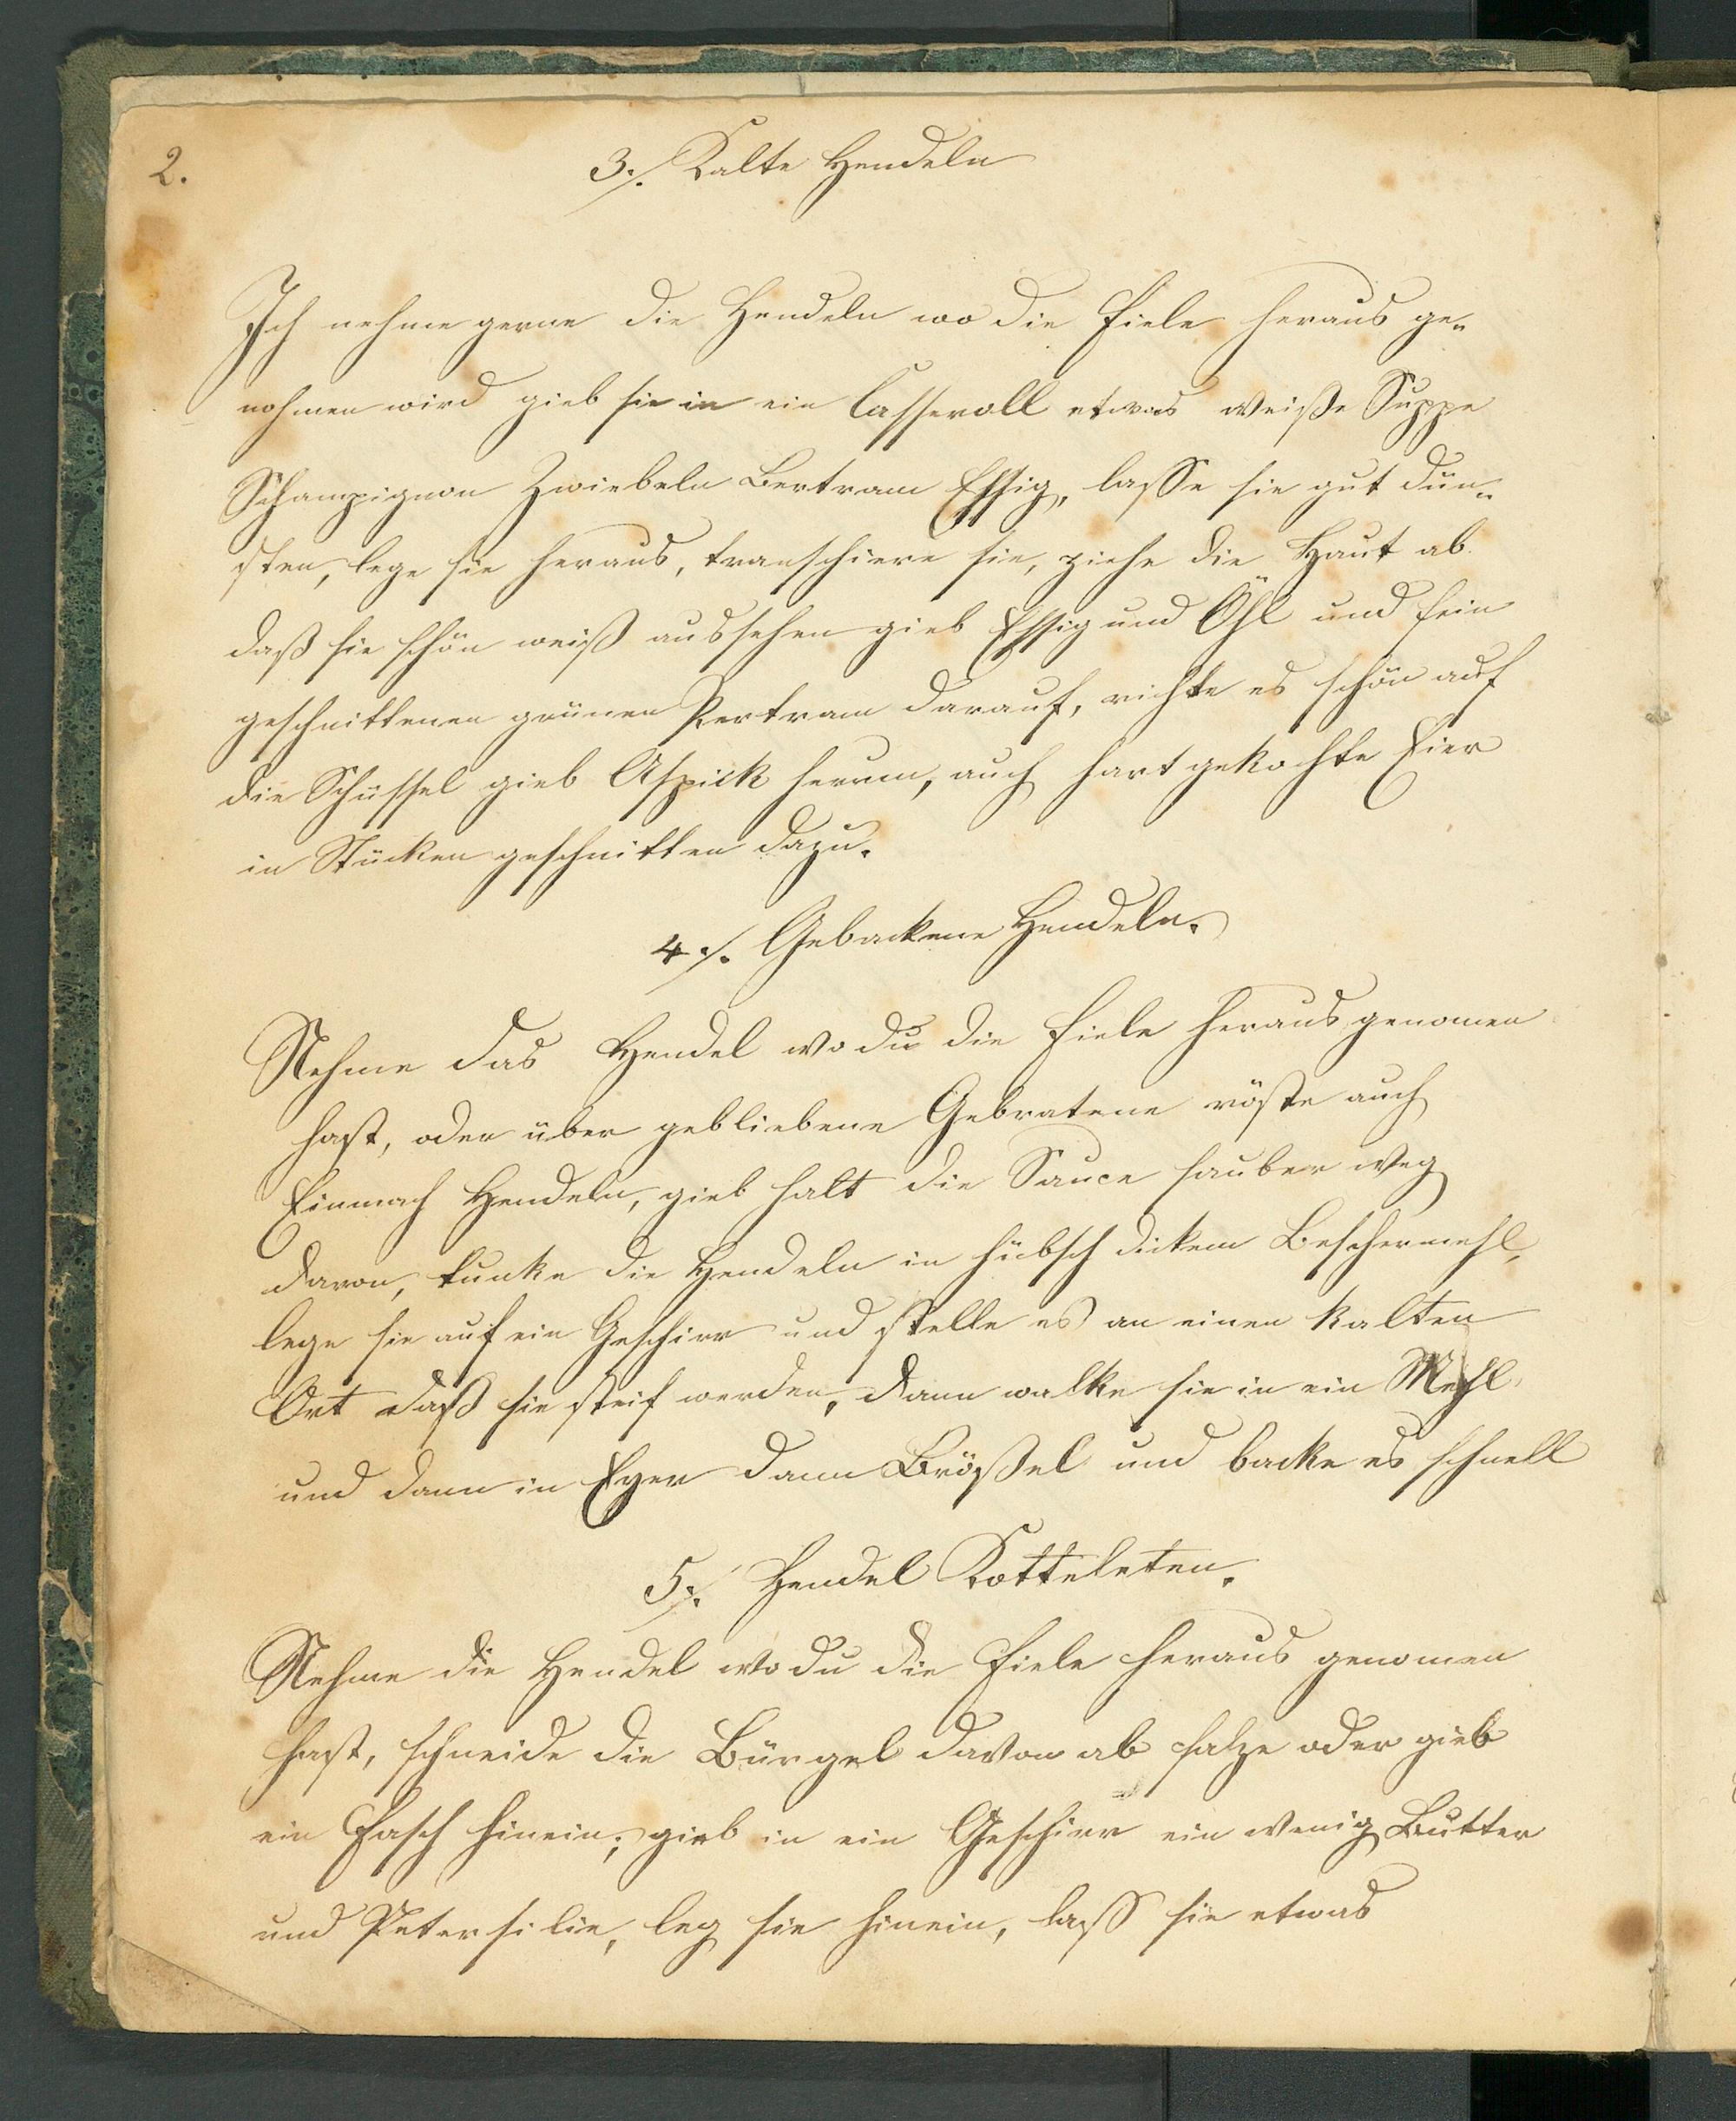 2.
3./. Kalte Hendeln
Ich nehme gerne die Hendeln wo die Fiele heraus ge-
nohmen wird gieb sie in ein Casseroll etwas weiße Suppe
Schampignon Zwiebeln Bertram Essig, lasse sie gut dün-
sten, lege sie heraus, transchiere sie, ziehe die Haut ab
daß sie schön weiß aussehen gieb Essig und Öhl und fein
geschnittenen grünen Pertram darauf, richte es schön auf
die Schüssel gieb Aspick herum, auch hart gekochte Eier
in Stücken geschnitten dazu.
4./. Gebackene Hendeln.
Nehme das Hendel wo du die Fiele heraus genomen
hast, oder über gebliebene Gebratene röste auch
Einmach Hendeln, gieb halt die Sauce sauber weg
davon, tunke die Hendeln in hübsch dickem Beschermehl,
lege sie auf ein Geschirr und stelle es an einen kalten
Ort daß sie steif werden, dann walke sie in ein Mehl
und dann in Eyer dann Brößel und backe es schnell
5./. Hendel Kotteleten.
Nehme die Hendel wo du die Fiele heraus genomen
hast, schneide die Bürgel davon ab salze oder gieb
ein Fasch hinein, gieb in ein Geschirr ein wenig Butter
und Petersilie, leg sie hinein, lass sie etwas